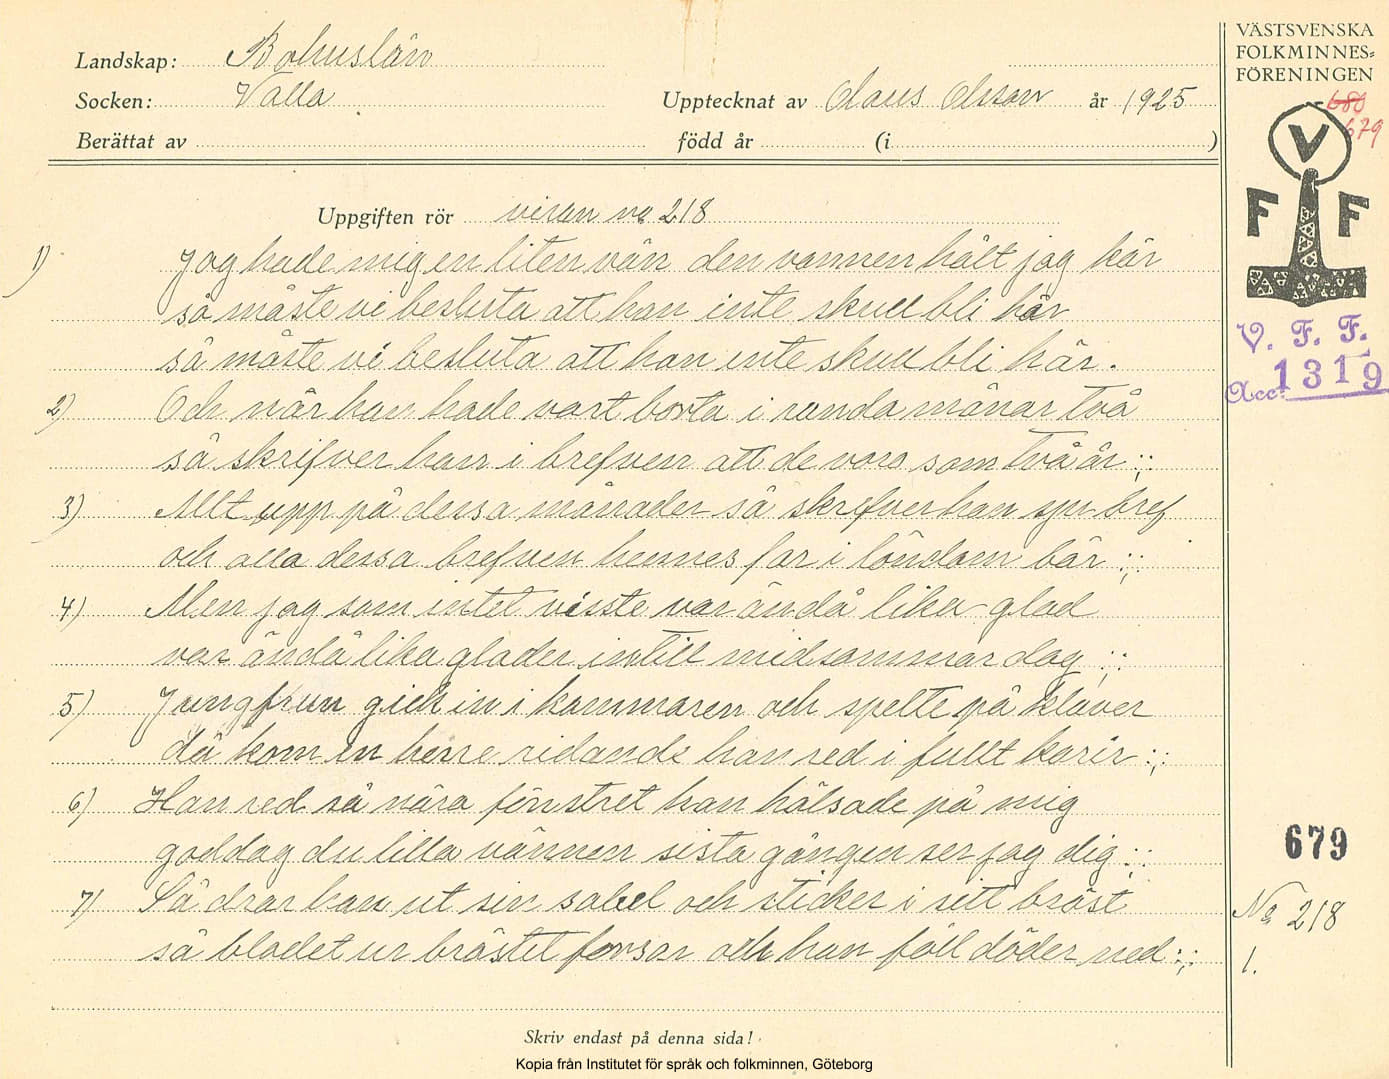 Landskap: Bohuslän
Socken: Valla
Upptecknat av Claus Olsson år 1925
Berättat av
född år (i )
VÄSTSVENSKA
FOLKMINNES=
FÖRENINGEN
680
679
V
F F
V. F. F.
Acc. 1319
Uppgiften rör visan no 218
1) Jag hade mig en liten vän den vännen hålt jag kär
så måste vi besluta att han inte skull bli här
så måste vi besluta att han inte skull bli här.
2) Och när han hade vart borta i runda månar två
så skrifver han i brefven att de voro som två år :;:
3) Allt upp på dessa månader så skrefver han sju bref
och alla dessa brefven hennes far i löndom bär :;:
4) Men jag som intet visste var ändå lika glad
var ändå lika glader intill midsommar dag :;:
5) Jungfrun gick in i kammaren och spelte på klaver
då kom en herre ridande han red i fullt karir :;:
6) Han red så nära fönstret han hälsade på mig
goddag du lilla vännen sista gången ser jag dig :;:
7) Så drar han ut sin sabel och sticker i sitt bröst
så blodet ur bröstet forsar och han föll döder ned :;:
679
No 218
1.
Skriv endast på denna sida!
Kopia från Institutet för språk och folkminnen, Göteborg